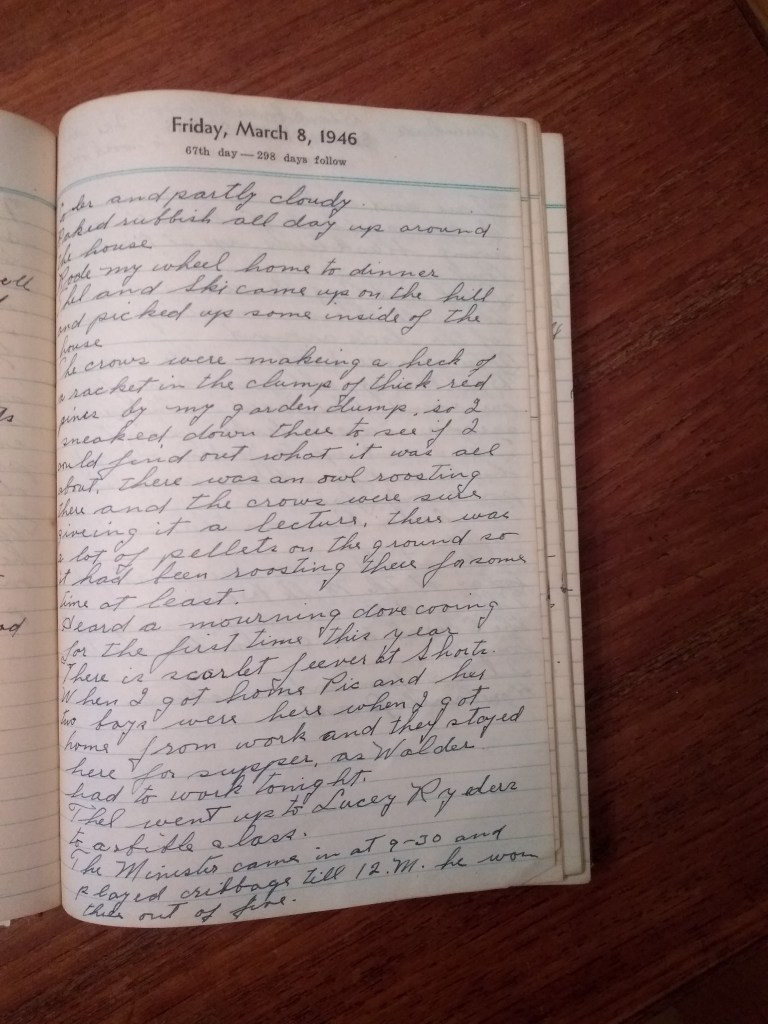 Friday, March 8, 1946
67th day — 298 days follow
and partly cloudy
Raked rubbish all day up around
the house
Rode my wheel home to dinner
Thel and Ski came up on the hill
and picked up some inside of the
house
The crows were makeing a heck of
a racket in the clump of thick red
pines by my garden dump, so I
sneaked down there to see if I
could find out what it was all
about, there was an owl roosting
there and the crows were sure
giveing it a lecture, there was
a lot of pellets on the ground so
it had been roosting there for some
time at least.
Heard a mourning dove cooing
for the first time this year
There is scarlet feever at Shorts.
When I got home Pic and her
two boys were here when I got
home from work and they stayed
here for supper, as Walder
had to work tonight.
Thel went up to Lucey Ryders
to a bible class.
The Minister came in at 9-30 and
played cribbage till 12.M. he won
three out of five.
ell
ts
ad